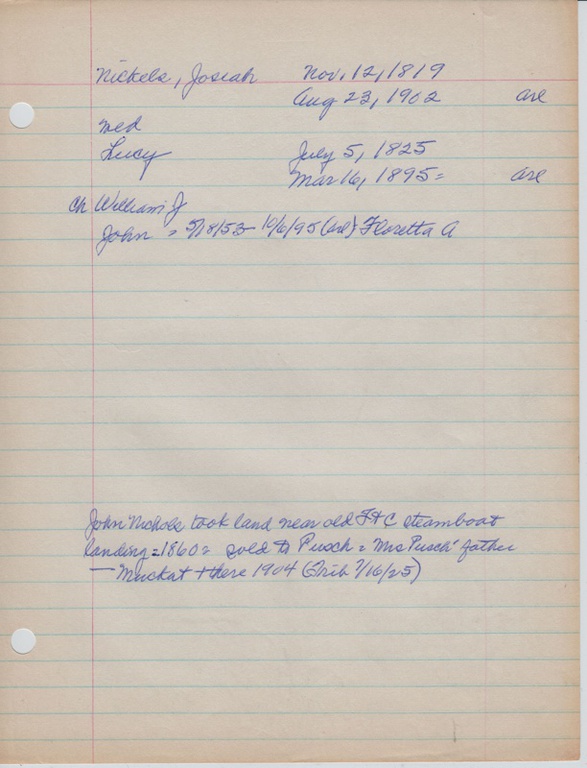 Nickels, Josiah Nov. 12, 1819
Aug 23, 1902 ore
med
Lucy July 5, 1825
Mar 16, 1895= ore
Ch William J
John = 5/18/53- 10/6/95 (ore) Floretta A
John Nichols took land near old F+C steamboat
landing=1860= sold to Pusch = Mrs Pusch' father
— there 1904 (Trib 7/16/25)